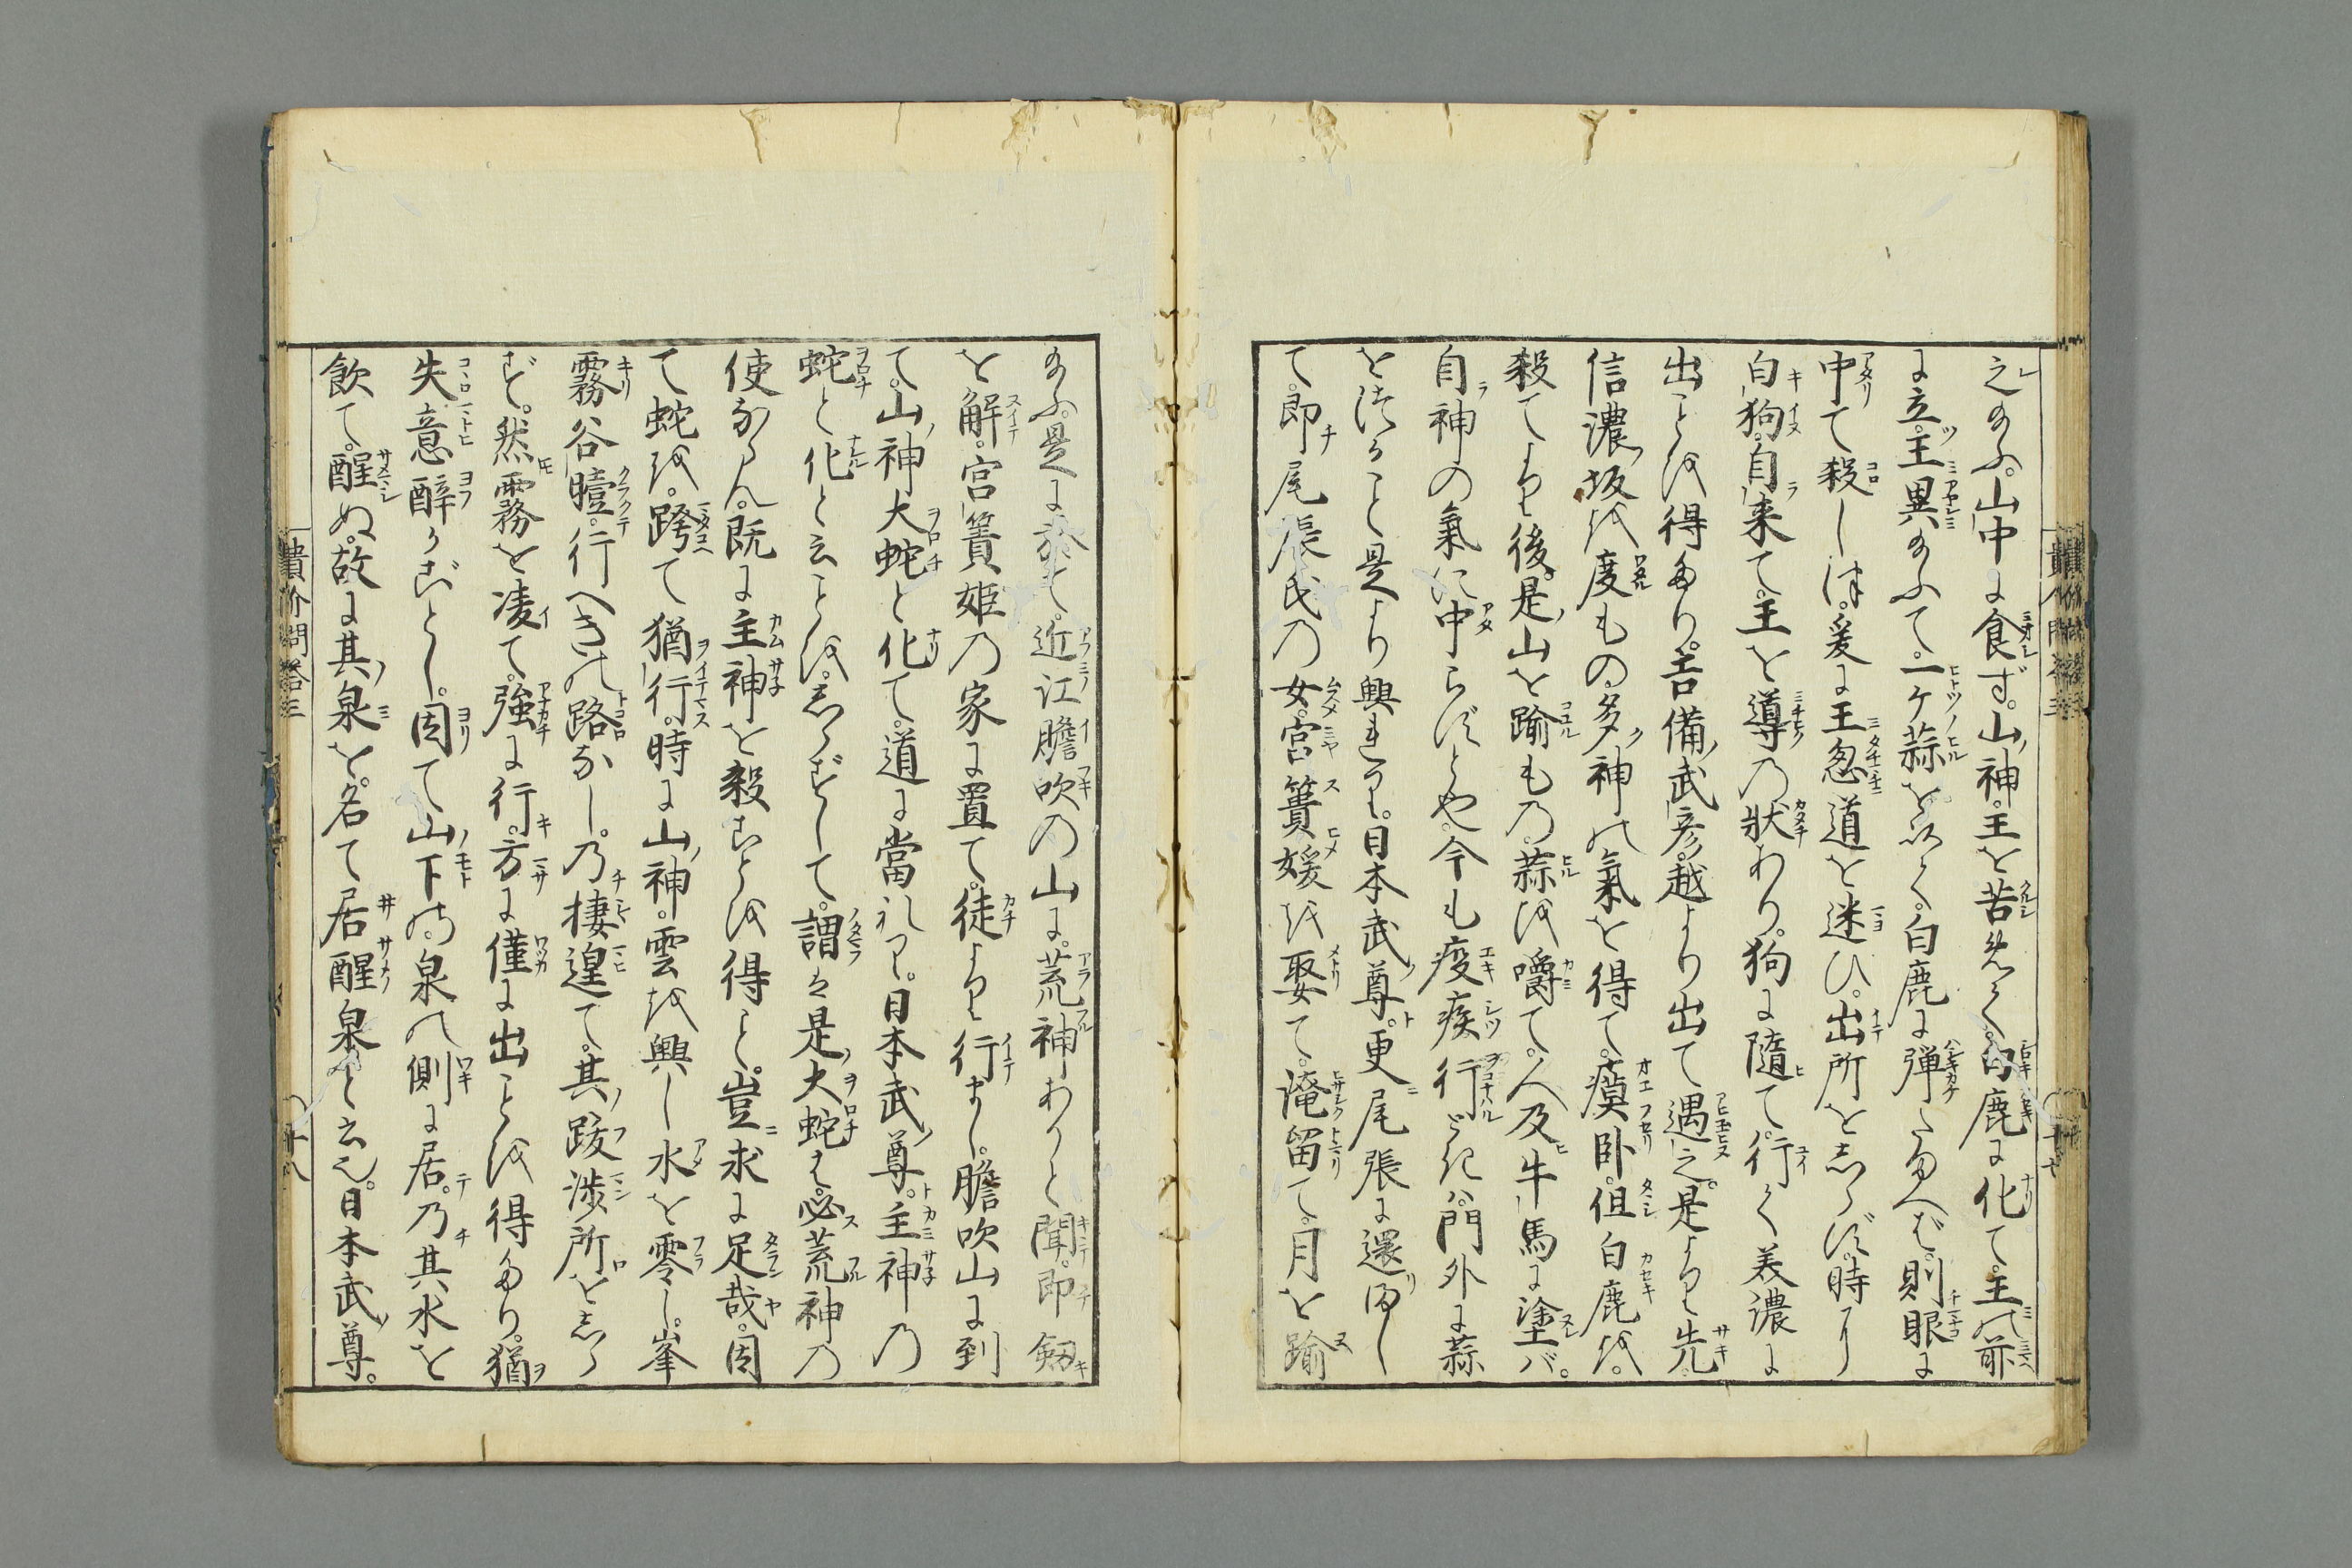 之給ふ。山中に食ず。山神。王を苦しめんと。白鹿に化て。王の前
に立。王異給ふて。一ケ蒜を以て。白鹿に弾たまへば。則眼に
中て殺しけり。爰に王忽道を迷ひ。出所をしらず。時に
白狗。自来て。王を導の状あり。狗に随て。行て美濃に
出ことを得たり。吉備武彦。越より出て遇之。是より先。
信濃坂を度もの。多神の氣を得て。瘼卧。但白鹿を。
殺てより後。是山を踰もの。蒜を嚼て。人及牛馬に塗バ。
自神の氣に中らずとや。今も疫疾行るれバ。門外に蒜
を懸ること是より興れり。日本武尊。更尾張に還まし
て。即尾張氏の女。宮簀媛を娶て。淹留て。月を踰
給ふ。是に於て。近江膽吹の山に。荒神ありと聞。即劔
を解。宮簀姫の家に置て。徒より行まし。膽吹山に到
て。山神大蛇と化て。道に當れり。日本武尊。主神の
蛇と化と云ことを。しらずして。謂は是大蛇は。必荒神の
使ならん。既に主神を殺ことを得と。豈求に足哉。因
て蛇を。跨て猶行。時に山神。雲を興し水を零し。峯
霧谷曀。行へきの路なし。乃捿遑て。其跋渉所をしら
ず。然霧を凌て。強に行。方に僅に出ことを得たり。猶
失意醉るごとし。因て山下の泉の側に居。乃其水を
飲て。醒ぬ。故に其泉を。名て居醒泉と云也。日本武尊。
貴介問答三
十八